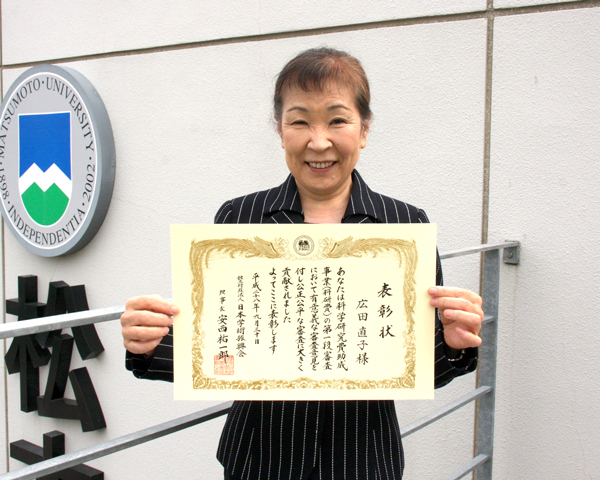 MATSUMOTO・UNIVERSITY
1898・INDEPENDENTIA・2002
松本
表彰状
広田 直子 様
あなたは科学研究費助成
事業(科研費)の第一段審査
において有意義な審査意見を
付し公正公平な審査に大きく
貢献されました
よってここに表彰します
平成二十六年九月三十日
独立行政法人 日本学術振興会
理事長 安西祐一郎